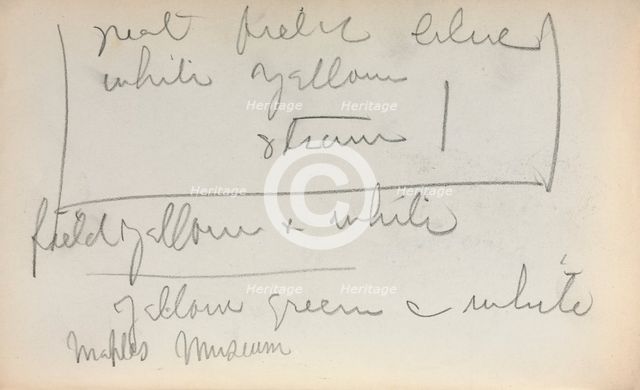 neat fields blue
white yellow
stream
field yellow & white
yellow green & white
Maples Museum
Heritage Heritage
Heritage Heritage
Heritage Heritage
©